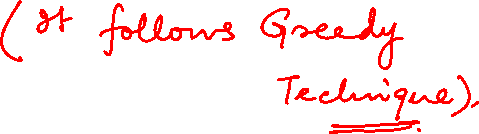 (It follows Greedy
Technique).